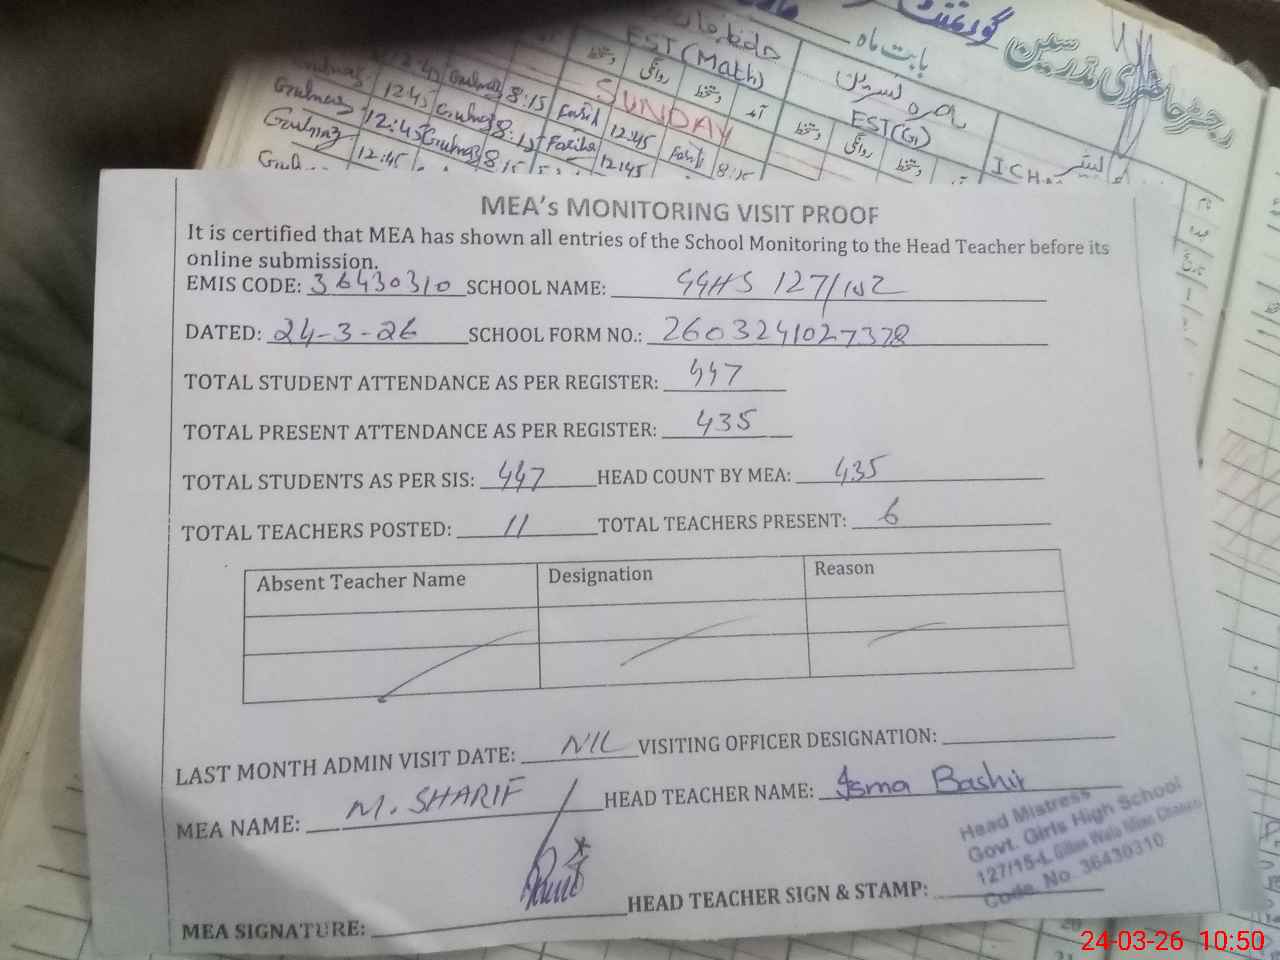 رجسٹر حاضری مدرسین
بابت ماہ
EST (Math)
EST (G)
SUNDAY
12:45 Gulnaz 8:15 Fariha 12:45
12:45 8:15 Fariha 12:45 8:15
12:45 8:15
MEA's MONITORING VISIT PROOF
It is certified that MEA has shown all entries of the School Monitoring to the Head Teacher before its
online submission.
EMIS CODE: 36430310 SCHOOL NAME: GGHS 127/15L
DATED: 24-3-26 SCHOOL FORM NO.: 2603241027378
TOTAL STUDENT ATTENDANCE AS PER REGISTER: 447
TOTAL PRESENT ATTENDANCE AS PER REGISTER: 435
TOTAL STUDENTS AS PER SIS: 447 HEAD COUNT BY MEA: 435
TOTAL TEACHERS POSTED: 11 TOTAL TEACHERS PRESENT: 6
Absent Teacher Name Designation Reason
LAST MONTH ADMIN VISIT DATE: NIL VISITING OFFICER DESIGNATION:
MEA NAME: M. SHARIF HEAD TEACHER NAME: Isma Bashir
Head Mistress
Govt. Girls High School
127/15-L Mian Channu
Code No 36430310
MEA SIGNATURE: HEAD TEACHER SIGN & STAMP:
24-03-26 10:50